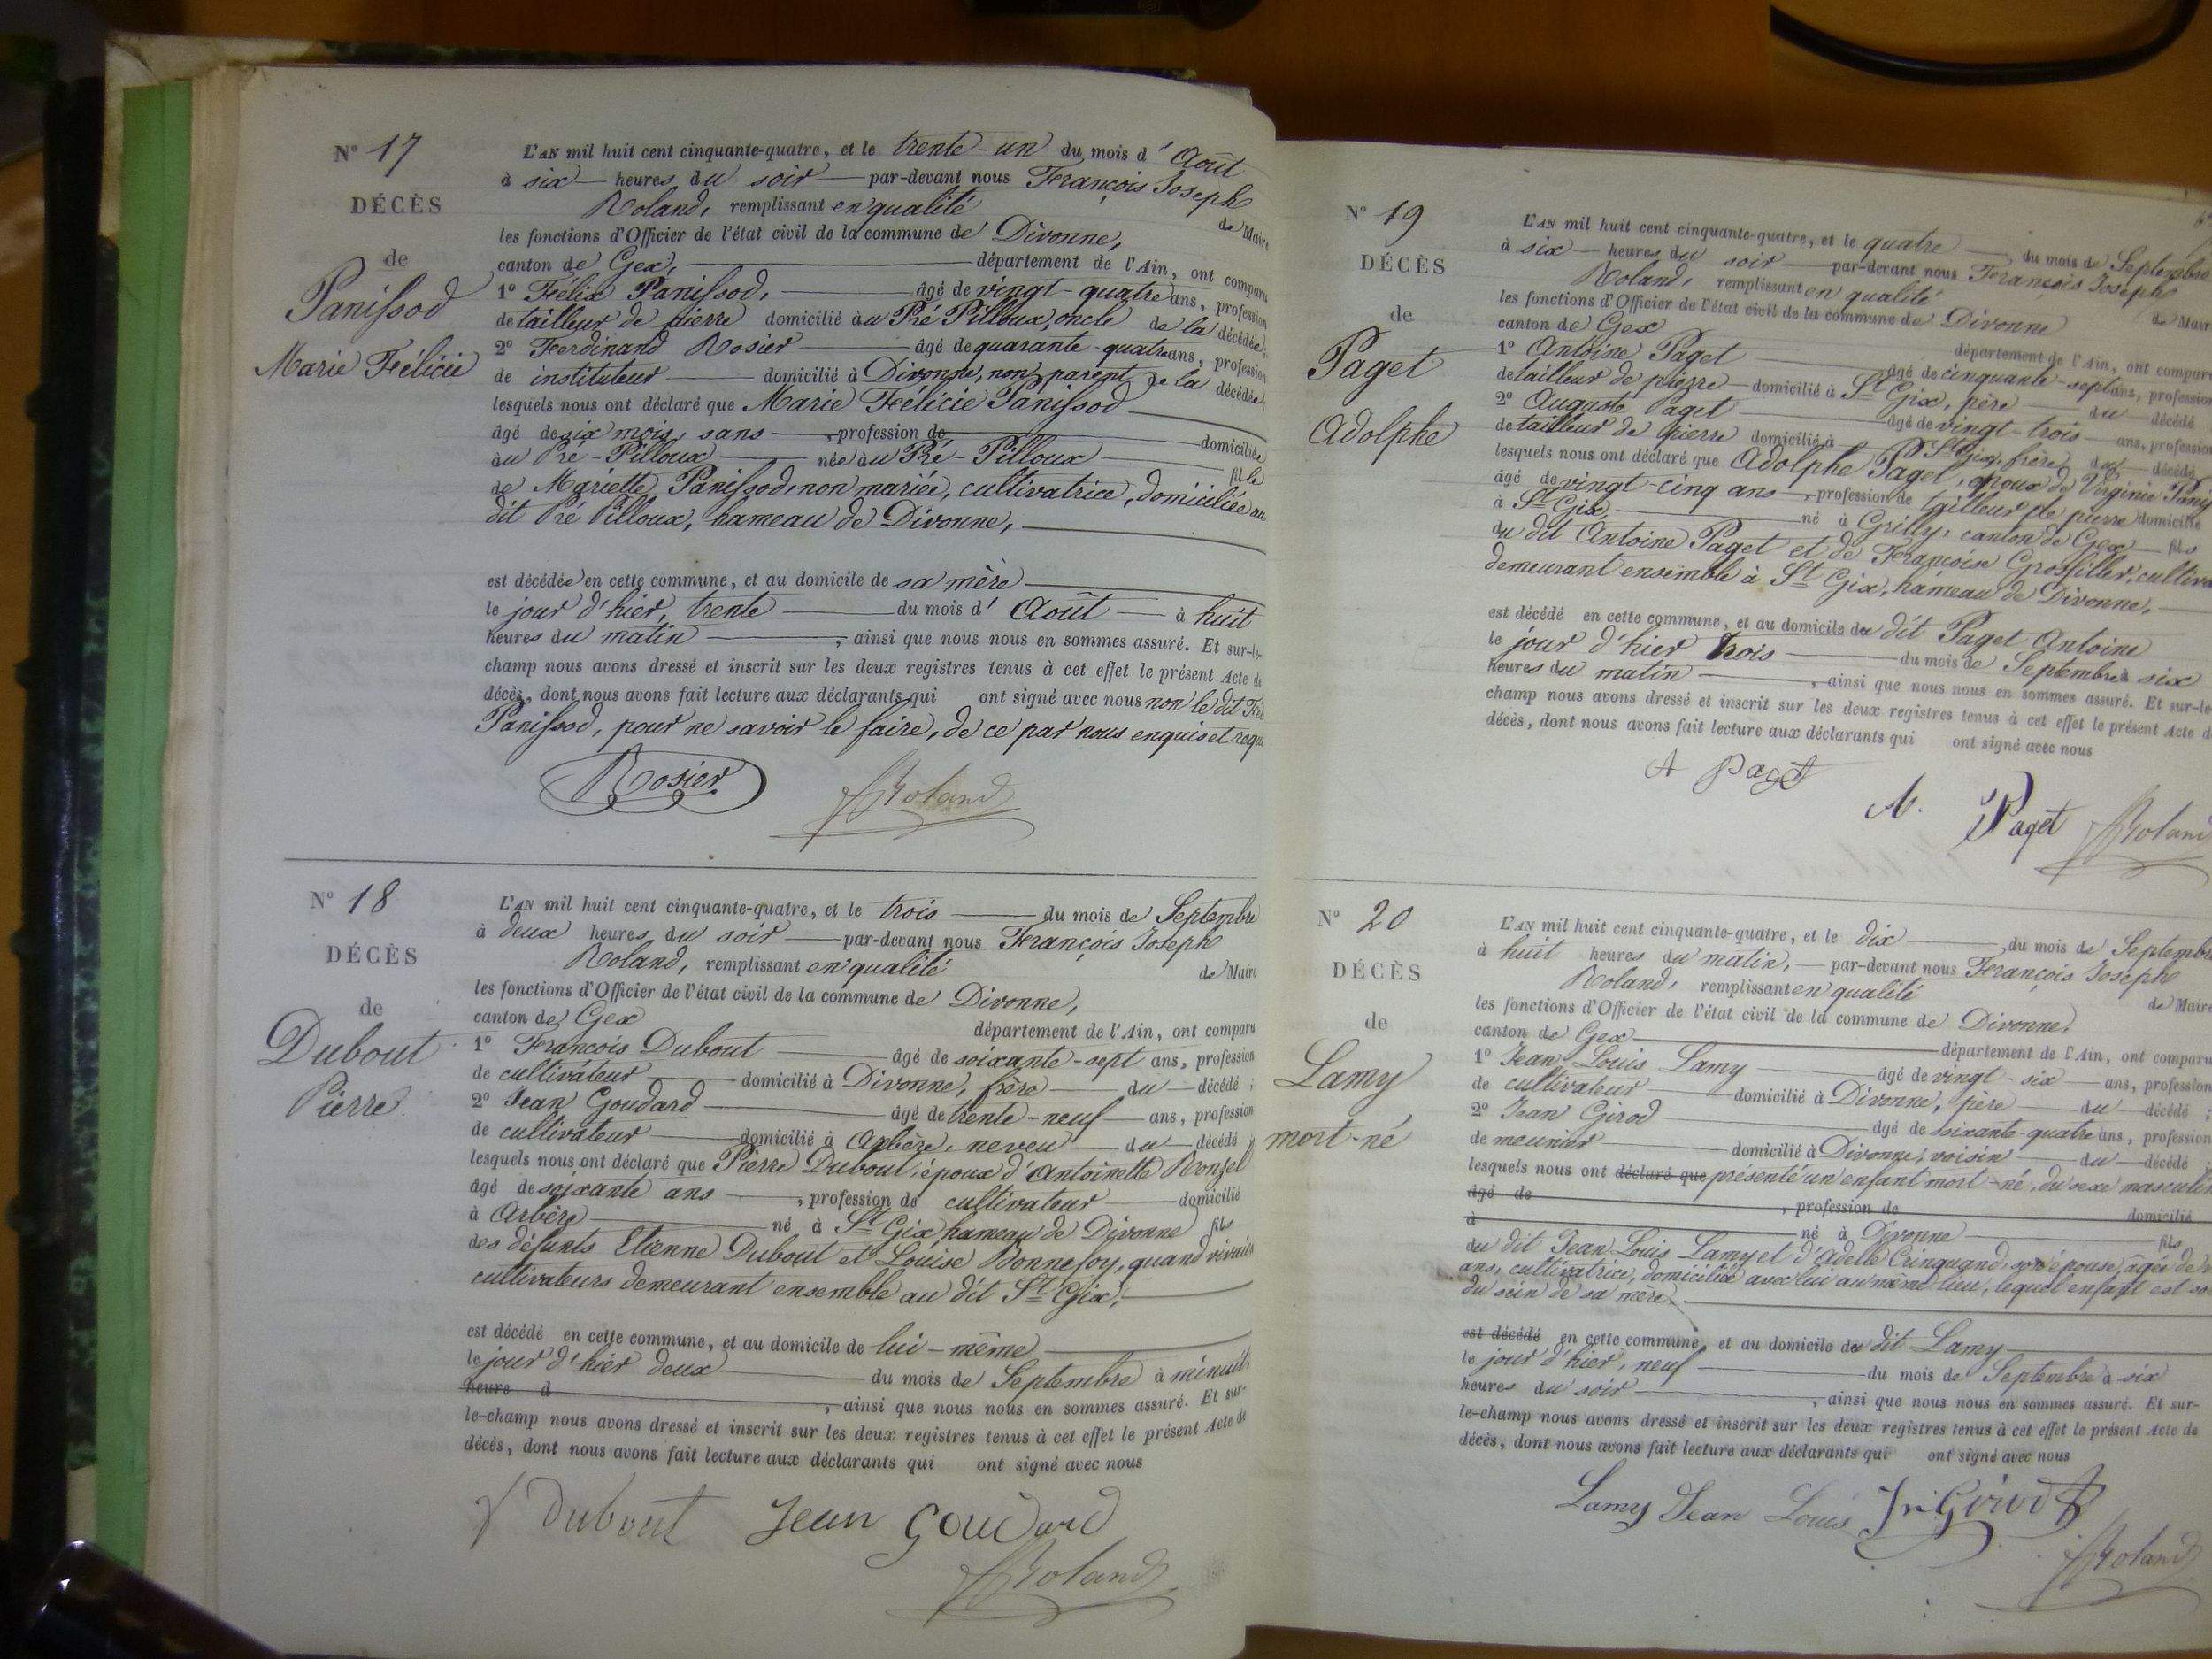 Nº 17
DÉCÈS
de
Panissod
Marie Félicie
L'AN mil huit cent cinquante-quatre, et le trente-un du mois d'Août
à six heures du soir par-devant nous François Joseph
Roland, remplissant en qualité de Maire
les fonctions d'Officier de l'état civil de la commune de Divonne,
canton de Gex, département de l'Ain, ont comparu
1º Félix Panissod, âgé de vingt-quatre ans, profession
de tailleur de pierre domicilié au Pré Pilloux, oncle de la décédée;
2º Ferdinand Rosier âgé de quarante-quatre ans, profession
de instituteur domicilié à Divonne, non parent de la décédée;
lesquels nous ont déclaré que Marie Félicie Panissod
âgé de six mois, sans profession de domiciliée
au Pré-Pilloux née au Pré-Pilloux fille
de Mariette Panissod, non mariée, cultivatrice, domiciliée au
dit Pré Pilloux, hameau de Divonne,
est décédée en cette commune, et au domicile de sa mère
le jour d'hier, trente du mois d'Août à huit
heures du matin, ainsi que nous nous en sommes assuré. Et sur-le-
champ nous avons dressé et inscrit sur les deux registres tenus à cet effet le présent Acte de
décès, dont nous avons fait lecture aux déclarants qui ont signé avec nous non le dit
Panissod, pour ne savoir le faire, de ce par nous enquis et
Rosier
Roland
Nº 18
DÉCÈS
de
Dubout
Pierre
L'AN mil huit cent cinquante-quatre, et le trois du mois de Septembre
à deux heures du soir par-devant nous François Joseph
Roland, remplissant en qualité de Maire
les fonctions d'Officier de l'état civil de la commune de Divonne,
canton de Gex département de l'Ain, ont comparu
1º François Dubout âgé de soixante-sept ans, profession
de cultivateur domicilié à Divonne, frère du décédé;
2º Jean Goudard âgé de trente-neuf ans, profession
de cultivateur domicilié à Arbère, neveu du décédé
lesquels nous ont déclaré que Pierre Dubout, époux d'Antoinette
âgé de soixante ans, profession de cultivateur domicilié
à Arbère né à St Gix hameau de Divonne fils
des défunts Etienne Dubout et Louise Bonnefoy, quand vivait
cultivateurs demeurant ensemble au dit St Gix,
est décédé en cette commune, et au domicile de lui-même
le jour d'hier deux du mois de Septembre à minuit
heure d, ainsi que nous nous en sommes assuré. Et sur-
le-champ nous avons dressé et inscrit sur les deux registres tenus à cet effet le présent Acte de
décès, dont nous avons fait lecture aux déclarants qui ont signé avec nous
f Dubout Jean Goudard
Roland
Nº 19
DÉCÈS
de
Paget
Adolphe
L'AN mil huit cent cinquante-quatre, et le quatre du mois de Septembre
à six heures du soir par-devant nous François Joseph
Roland, remplissant en qualité de Maire
les fonctions d'Officier de l'état civil de la commune de Divonne
canton de Gex département de l'Ain, ont comparu
1º Antoine Paget âgé de cinquante-sept ans, profession
de tailleur de pierre domicilié à St Gix, père du décédé
2º Auguste Paget âgé de vingt-trois ans, profession
de tailleur de pierre domicilié à St Gix, frère du décédé
lesquels nous ont déclaré que Adolphe Paget, époux de Virginie
âgé de vingt-cinq ans, profession de tailleur de pierre domicilié
à St Gix, né à Grilly, canton de Gex fils
du dit Antoine Paget et de Françoise Grosfiller,
demeurant ensemble à St Gix, hameau de Divonne,
est décédé en cette commune, et au domicile du dit Paget Antoine
le jour d'hier trois du mois de Septembre à six
heures du matin, ainsi que nous nous en sommes assuré. Et sur-le-
champ nous avons dressé et inscrit sur les deux registres tenus à cet effet le présent Acte de
décès, dont nous avons fait lecture aux déclarants qui ont signé avec nous
A Paget
A. Paget Roland
Nº 20
DÉCÈS
de
Lamy
mort-né
L'AN mil huit cent cinquante-quatre, et le dix du mois de Septembre
à huit heures du matin, par-devant nous François Joseph
Roland, remplissant en qualité de Maire
les fonctions d'Officier de l'état civil de la commune de Divonne,
canton de Gex département de l'Ain, ont comparu
1º Jean Louis Lamy âgé de vingt-six ans, profession
de cultivateur domicilié à Divonne, père du décédé;
2º Jean Girod âgé de soixante-quatre ans, profession
de meunier domicilié à Divonne, voisin du décédé
lesquels nous ont déclaré que présenté un enfant mort-né, du sexe masculin
âgé de, profession de domicilié
à né à Divonne fils
du dit Jean Louis Lamy et d'Adelle Cringuand, son épouse, âgée de
ans, cultivatrice, domiciliée avec lui au même lieu, lequel enfant est
du sein de sa mère.
est décédé en cette commune, et au domicile du dit Lamy
le jour d'hier, neuf du mois de Septembre à six
heures du soir, ainsi que nous nous en sommes assuré. Et sur-
le-champ nous avons dressé et inscrit sur les deux registres tenus à cet effet le présent Acte de
décès, dont nous avons fait lecture aux déclarants qui ont signé avec nous
Lamy Jean Louis Jn Girod
Roland